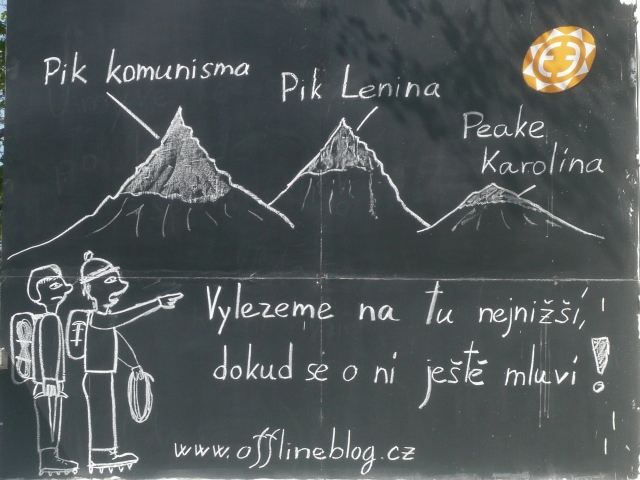 Pik komunisma
Pik Lenina
Peake
Karolina
Vylezeme na tu nejnižší,
dokud se o ni ještě mluví!
www.offlineblog.cz